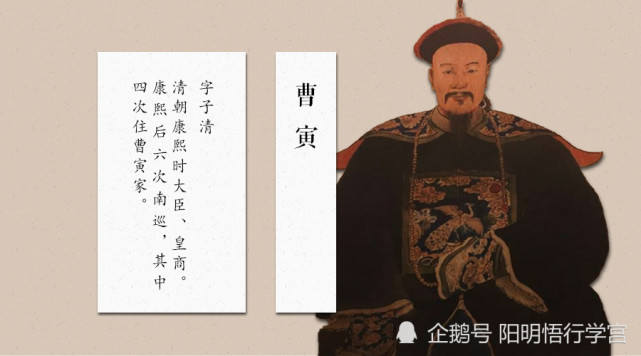 曹寅
字子清
清朝康熙时大臣、皇商。
康熙后六次南巡，其中
四次住曹寅家。
企鹅号 阳明悟行学宫